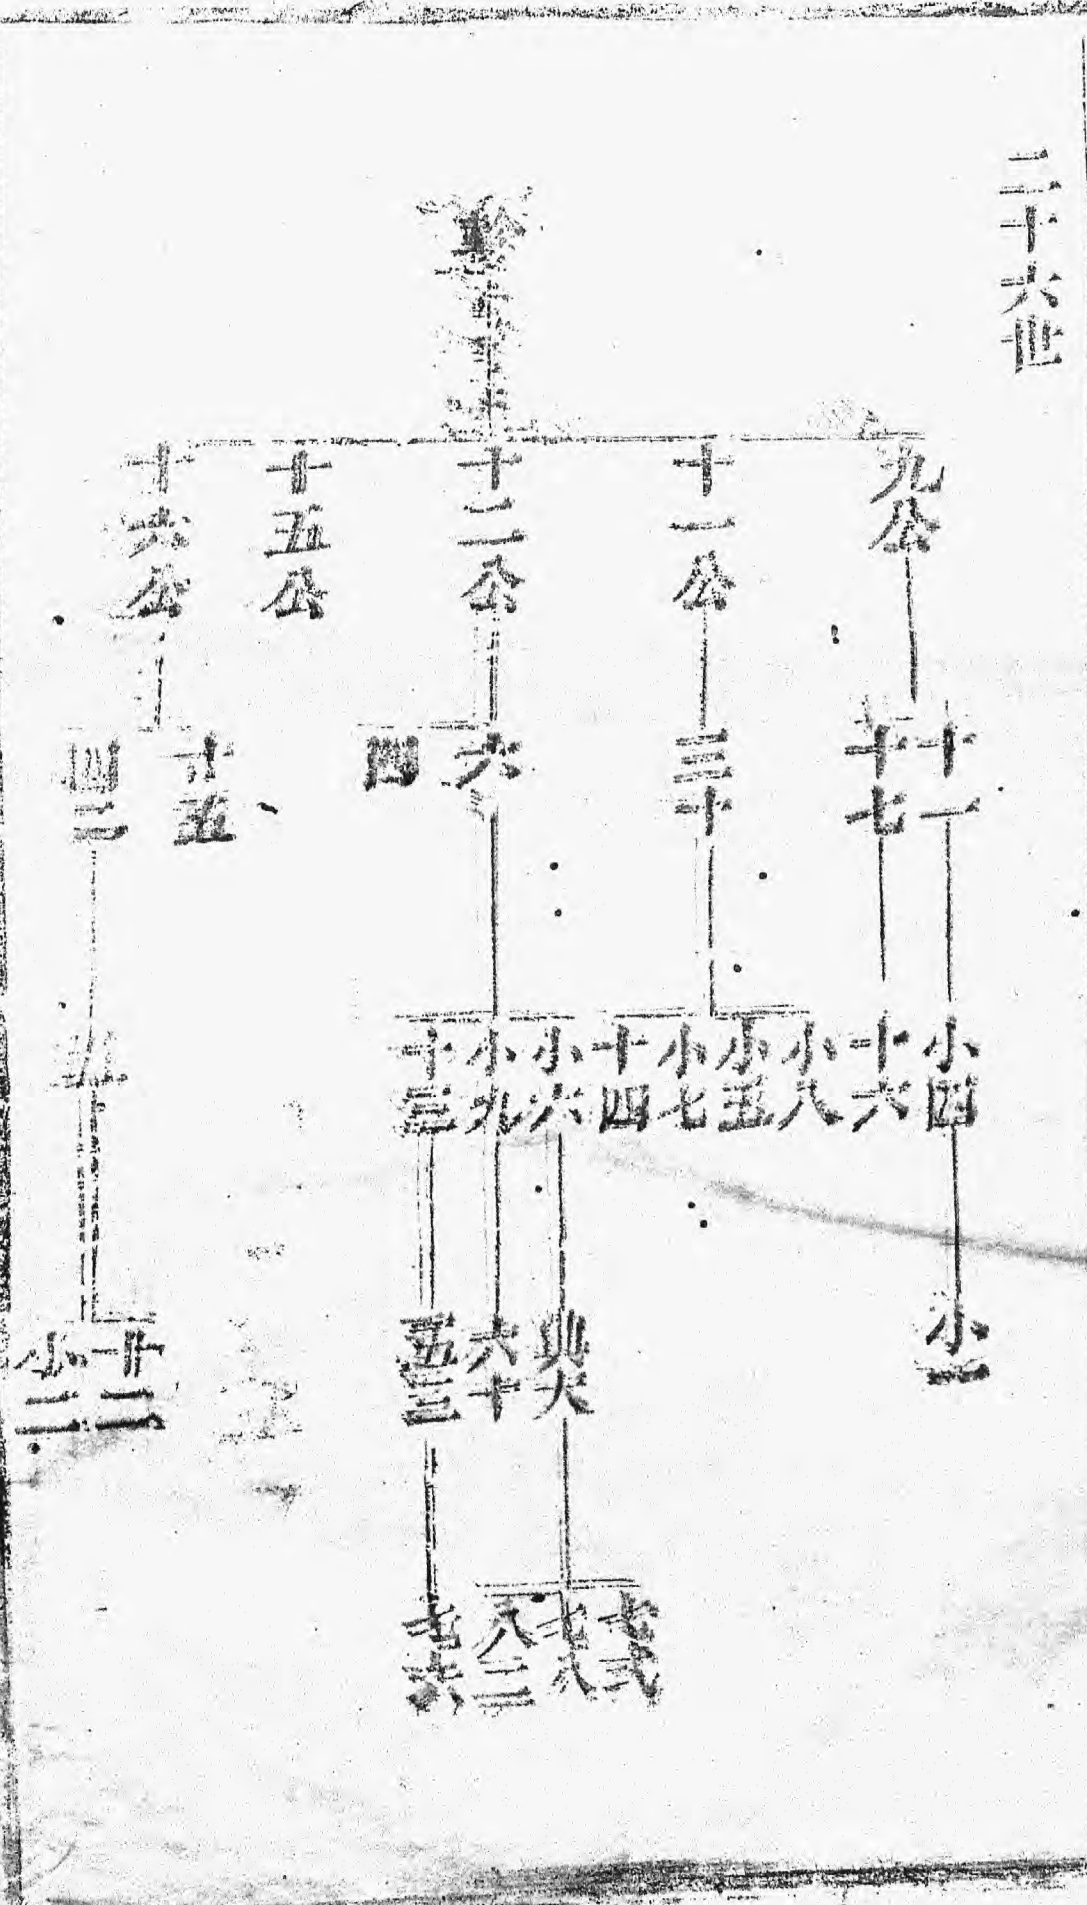 二十六世
九公
十一公
十二公
十五公
十六公
十一
十七
三十
六
四
十五
四二
小四
十六
小八
小五
小七
十四
小六
小九
十三
小一
六十
五三
廿二
小二
七八
八二
七六